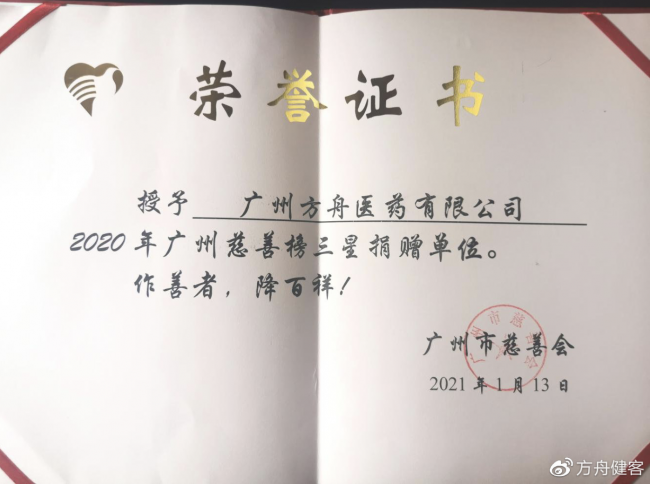 荣誉证书
授予 广州方舟医药有限公司
2020年广州慈善榜三星捐赠单位。
作善者，降百祥！
广州市慈善会
广州市慈善会
2021年1月13日
@方舟健客